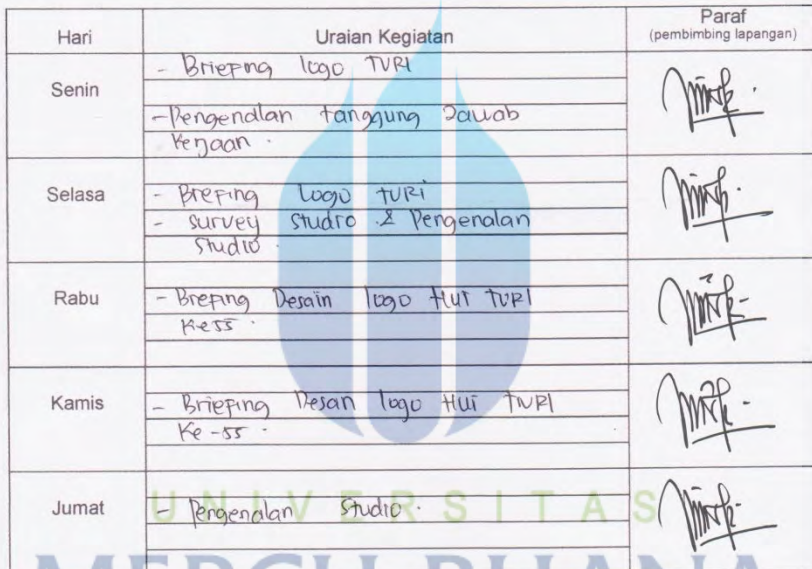 Hari Uraian Kegiatan Paraf
(pembimbing lapangan)
Senin
- Briefing logo TVRI
- Pengenalan tanggung Jawab
Kerjaan.
Selasa
- Brefing Logo TVRI
- survey studio & Pengenalan
Studio.
Rabu
- Brefing Desain logo HUT TVRI
Ke 55.
Kamis
- Briefing Desan logo HUT TVRI
Ke - 55.
Jumat
- Pengenalan Studio.
UNIVERSITAS
MERCU BUANA